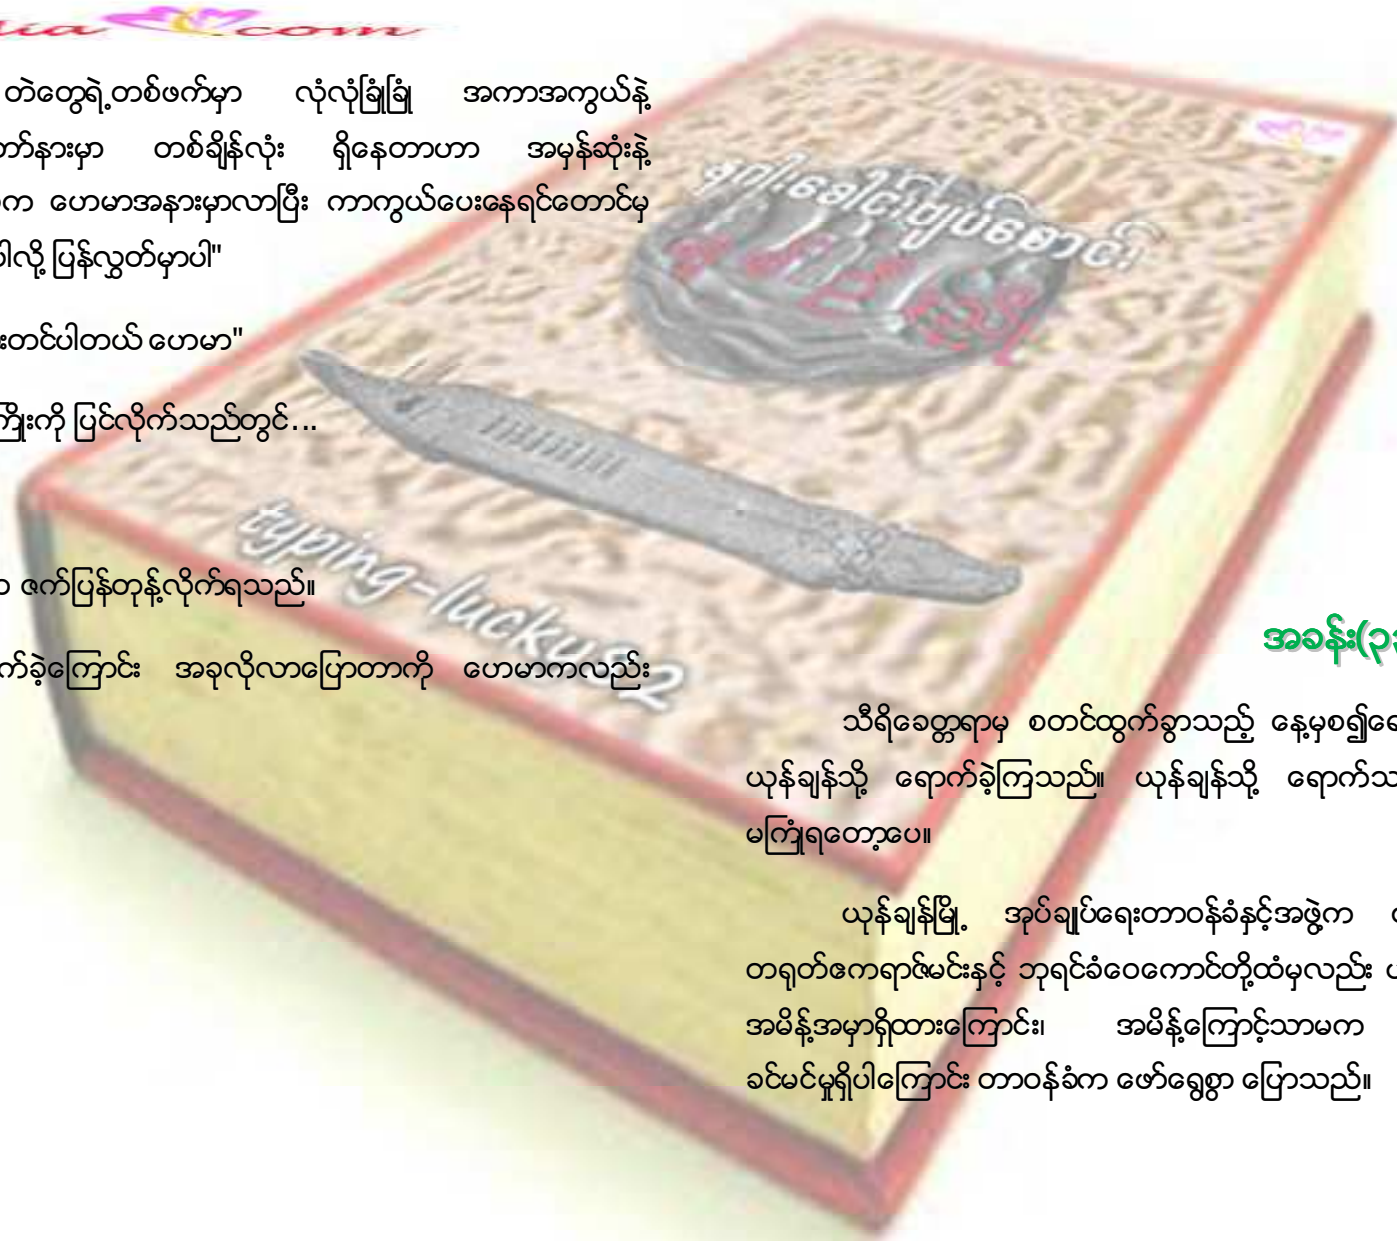 com
တဲတွေရဲ့တစ်ဖက်မှာ လုံလုံခြုံခြုံ အကာအကွယ်နဲ့
နားမှာ တစ်ချိန်လုံး ရှိနေတာဟာ အမှန်ဆုံးနဲ့
က ဟေမာအနားမှာလာပြီး ကာကွယ်ပေးနေရင်တောင်မှ
ပါလို့ ပြန်လွှတ်မှာပါ"
းတင်ပါတယ် ဟေမာ"
ကြိုးကို ပြင်လိုက်သည်တွင်...
ဇက်ပြန်တုန့်လိုက်ရသည်။
က်ခဲ့ကြောင်း အခုလိုလာပြောတာကို ဟေမာကလည်း
typing-lucky92
အခန်း(၃၃
သီရိခေတ္တရာမှ စတင်ထွက်ခွာသည့် နေ့မှစ၍
ယုန်ချန်သို့ ရောက်ခဲ့ကြသည်။ ယုန်ချန်သို့ ရောက်သ
မကြုံရတော့ပေ။
ယုန်ချန်မြို့ အုပ်ချုပ်ရေးတာဝန်ခံနှင့်အဖွဲ့က
တရုတ်ဧကရာဇ်မင်းနှင့် ဘုရင်ခံဝေကောင်တို့ထံမှလည်း
အမိန့်အမှာရှိထားကြောင်း၊ အမိန့်ကြောင့်သာမက
ခင်မင်မှုရှိပါကြောင်း တာဝန်ခံက ဖော်ရွေစွာ ပြောသည်။